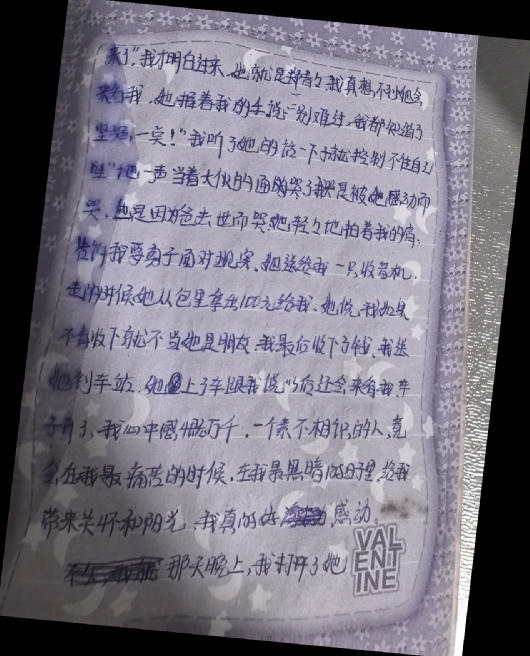 来了”我才明白过来，她就是郑青文，我真想不到她会
来看我，她握着我的手说“别难过，我都知道了
坚强一点！”我听了她的话一下子就控制不住自己
“哇”地一声当着大伙的面哭了我是被她感动而
哭，也是因为爸去世而哭她轻轻地拍着我的肩，
我要勇于面对现实，她送给我一只收音机，
走的时候她从包里拿出100元给我，她说，我如果
不肯收下就不当她是朋友，我最后收下了钱，我送
她到车站，她上了车跟我说以后还会来看我车
子开了，我心中感慨万千，一个素不相识的人，竟
会在我最痛苦的时候，在我最黑暗的日子里，给我
带来关怀和阳光，我真的好感动。
那天晚上，我打开了她
VAL
ENT
INE